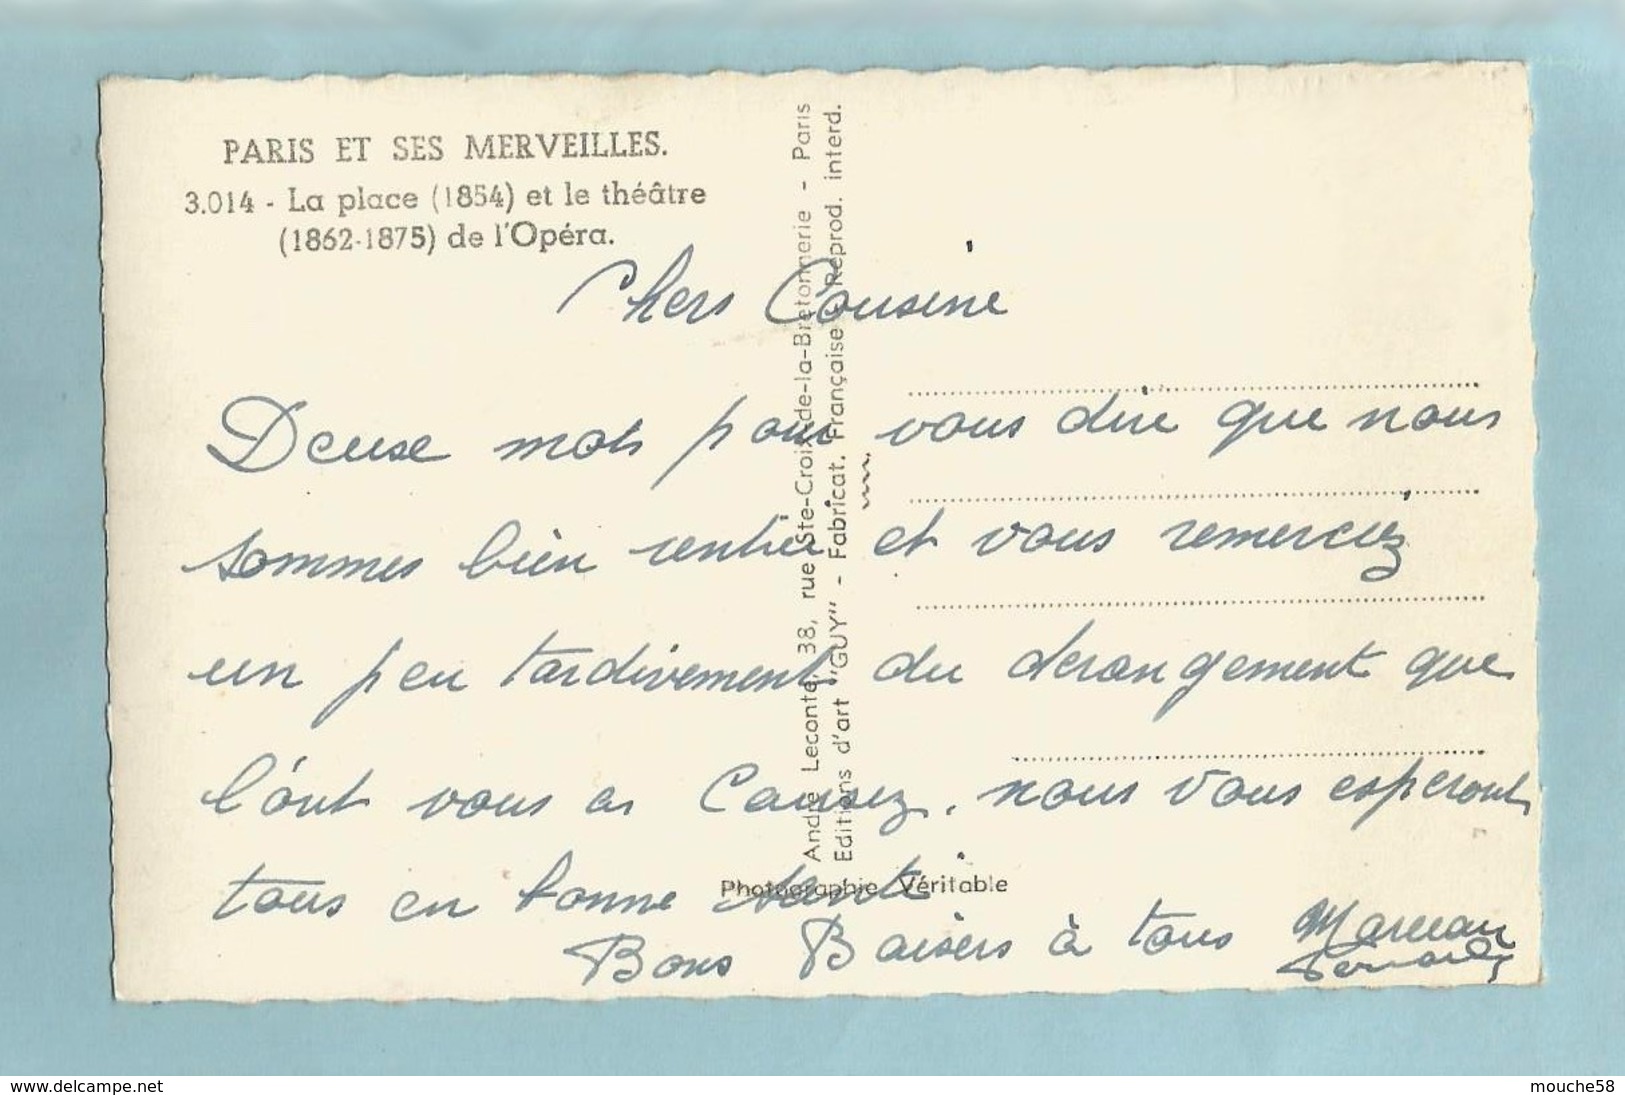 PARIS ET SES MERVEILLES.
3.014 - La place (1854) et le théâtre
(1862-1875) de l'Opéra.
Chers Cousine
Deuse mots pour vous dire que nous
sommes bien rentrer et vous remerciez
un peu tardivement du derangement que
l'ont vous as Causez. nous vous esperont
tous en bonne santé
Bons Baisers à tous
André Leconte, 38, rue Ste-Croix-de-la-Bretonnerie - Paris
Editions d'art "GUY" - Fabricat. Française Reprod. interd.
Photographie Véritable
www.delcampe.net
mouche58